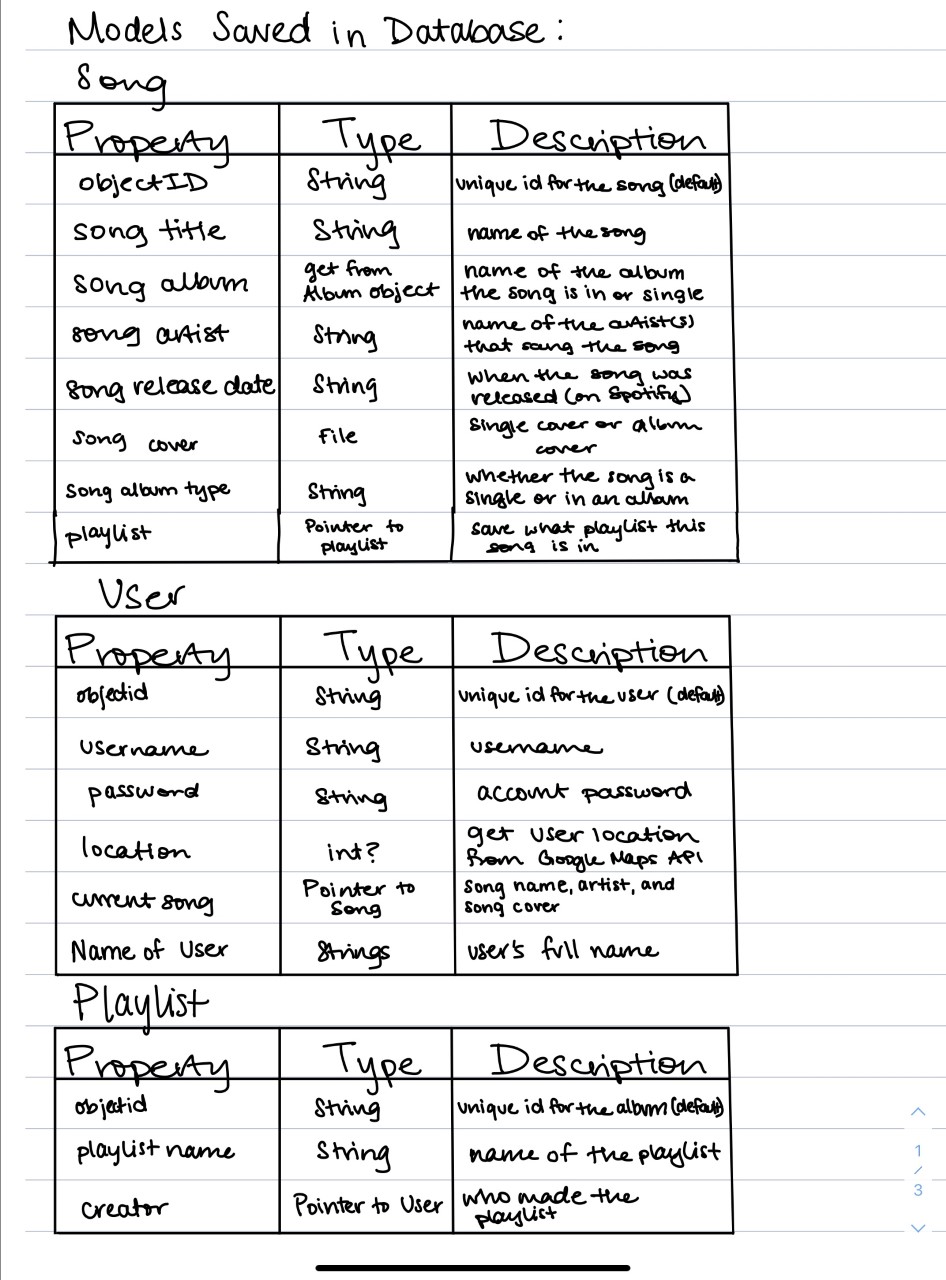 Models Saved in Database:
Song
Property Type Description
objectID String unique id for the song (default)
song title String name of the song
song album get from Album object name of the album the song is in or single
song artist String name of the artist(s) that sang the song
song release date String when the song was released (on Spotify)
song cover File single cover or album cover
song album type String whether the song is a single or in an album
playlist Pointer to playlist save what playlist this song is in
User
Property Type Description
objectid String unique id for the user (default)
username String username
password String account password
location int? get user location from Google Maps API
current song Pointer to Song song name, artist, and song cover
Name of User Strings user's full name
Playlist
Property Type Description
objectid String unique id for the album (default)
playlist name String name of the playlist
creator Pointer to User who made the playlist
1
/
3